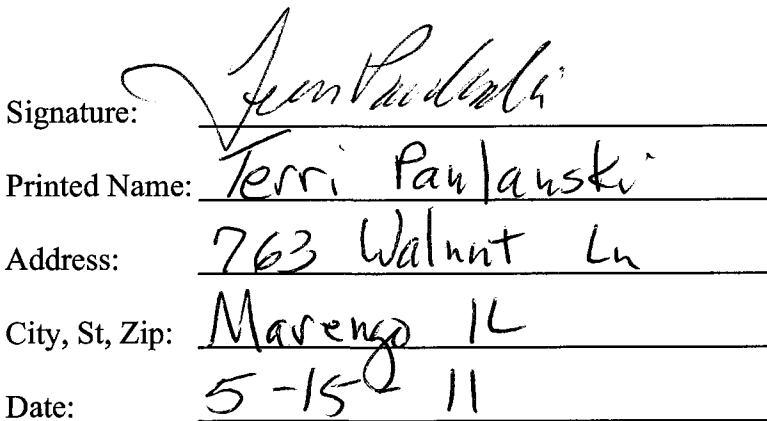 Signature:
Printed Name: Terri Paulauski
Address: 763 Walnut Ln
City, St, Zip: Marengo IL
Date: 5-15-11